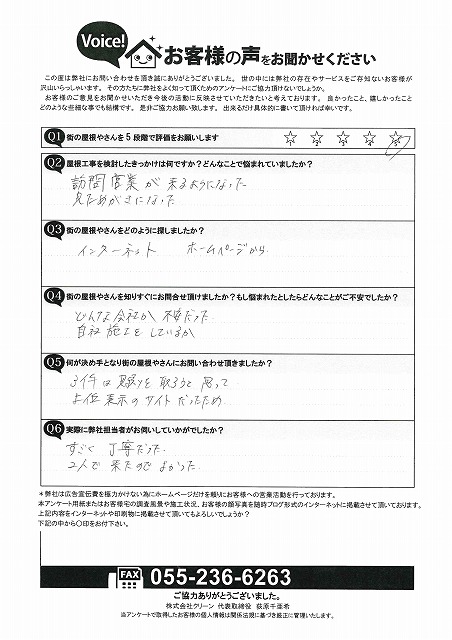 Voice!
お客様の声をお聞かせください
この度は弊社にお問い合わせを頂き誠にありがとうございました。 世の中には弊社の存在やサービスをご存知ないお客様が
沢山いらっしゃいます。 その方たちに弊社をよく知って頂くためのアンケートにご協力頂けないでしょうか。
お客様のご意見をお聞かせいただき今後の活動に反映させていただきたいと考えております。 良かったこと、嬉しかったこと
どのような些細な事でも結構です。 是非ご協力お願い致します。 出来るだけ具体的に書いて頂ければ幸いです。
Q1 街の屋根やさんを5段階で評価をお願いします ☆ ☆ ☆ ☆ ☆
Q2 屋根工事を検討したきっかけは何ですか？どんなことで悩まれていましたか？
訪問営業が来るようになった
見ためがきになった
Q3 街の屋根やさんをどのように探しましたか？
インターネット ホームページから.
Q4 街の屋根やさんを知りすぐにお問合せ頂けましたか？もし悩まれたとしたらどんなことがご不安でしたか？
どんな会社か 不安だった.
自社施工をしているか
Q5 何が決め手となり街の屋根やさんにお問い合わせ頂きましたか？
3件は見積りを取ろうと思って
上位表示のサイトだったため.
Q6 実際に弊社担当者がお伺いしていかがでしたか？
すごく丁寧だった.
2人で来たのでよかった.
＊弊社は広告宣伝費を極力かけない為にホームページだけを頼りにお客様への営業活動を行っております。
本アンケート用紙またはお客様宅の調査風景や施工状況、お客様の顔写真を随時ブログ形式のインターネットに掲載させて頂いております。
上記内容をインターネットや印刷物に掲載させて頂いてもよろしいでしょうか？
下記の中から〇印をお付下さい。
FAX 055-236-6263
ご協力ありがとうございました。
株式会社クリーン 代表取締役 荻原千亜希
当アンケートで取得したお客様の個人情報は関係法規に基づき厳正に管理いたします。